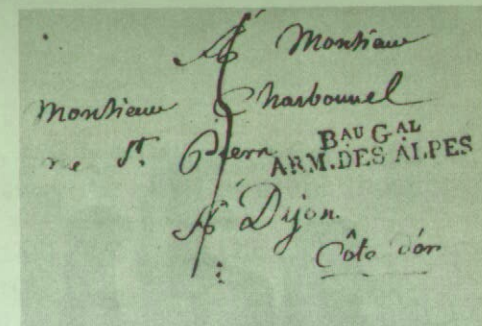 A Monsieur
Monsieur Charbonnel
rue St. Pierre
BAU GAL
ARM. DES ALPES
A Dijon
Côte d'or